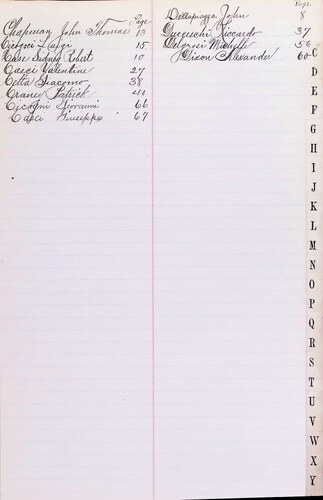 Page
Chapman John Thomas 13
Luigi 15
Case Sidney Robert 10
Casci Valentine 27
Cetta Giacomo 38
Crane Patrick 40
Cicogni Giovanni 66
Casci Giuseppe 67
Page
Dellapiazza John 8
Riccardo 37
Delgrosi Michele 56
Dixon Alexander 60
C
D
E
F
G
H
I
J
K
L
M
N
O
P
Q
R
S
T
U
V
W
X
Y